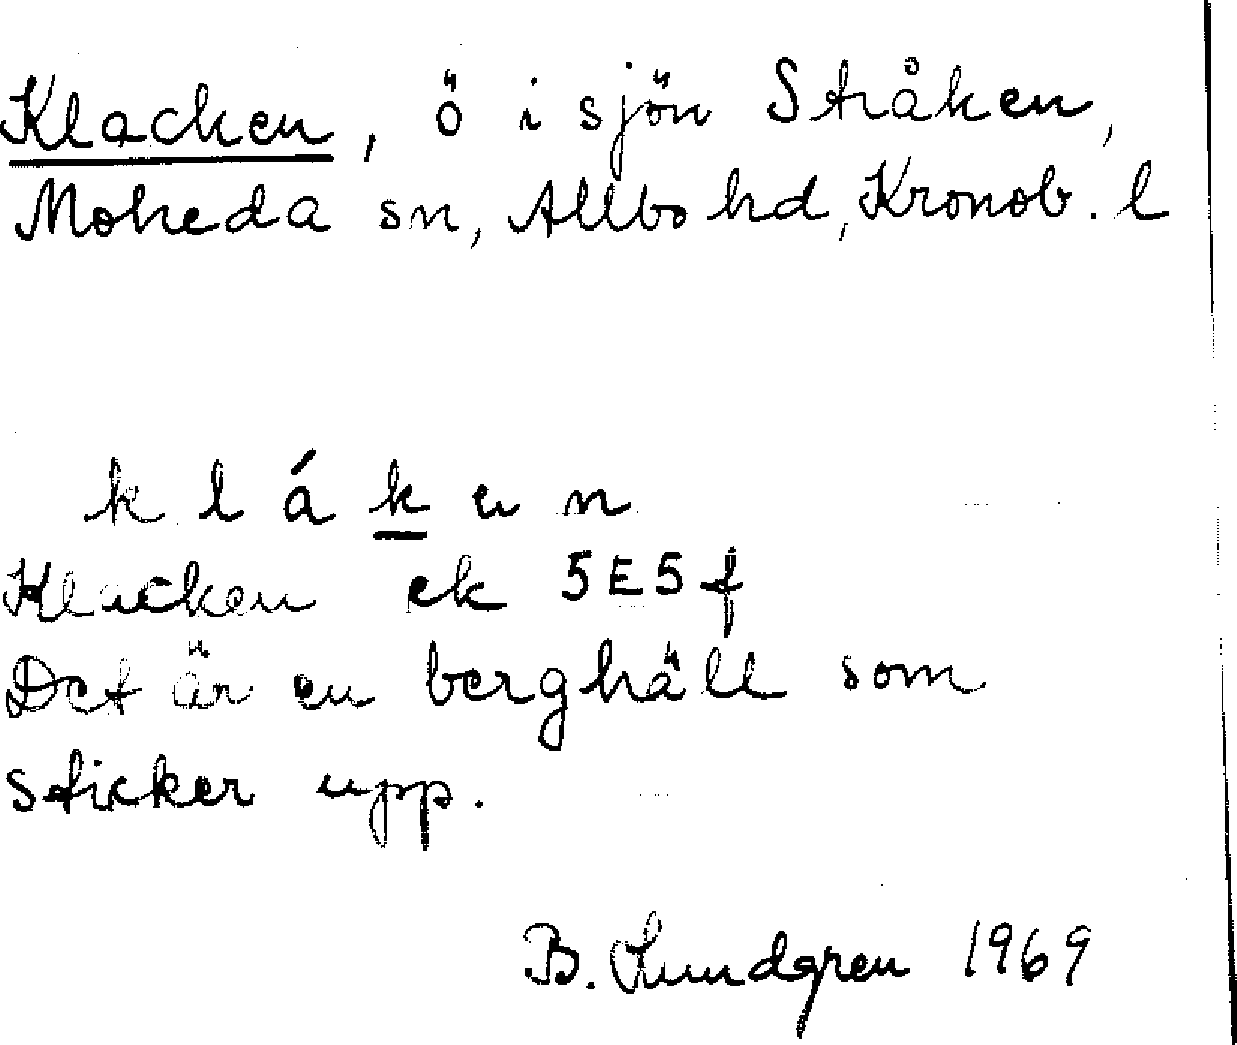 Klacken, ö i sjön Stråken,
Moheda sn, Allbo hd, Kronob. l
k l á k e n
Klacken ek 5E5f
Det är en berghäll som
sticker upp.
B. Lundgren 1969